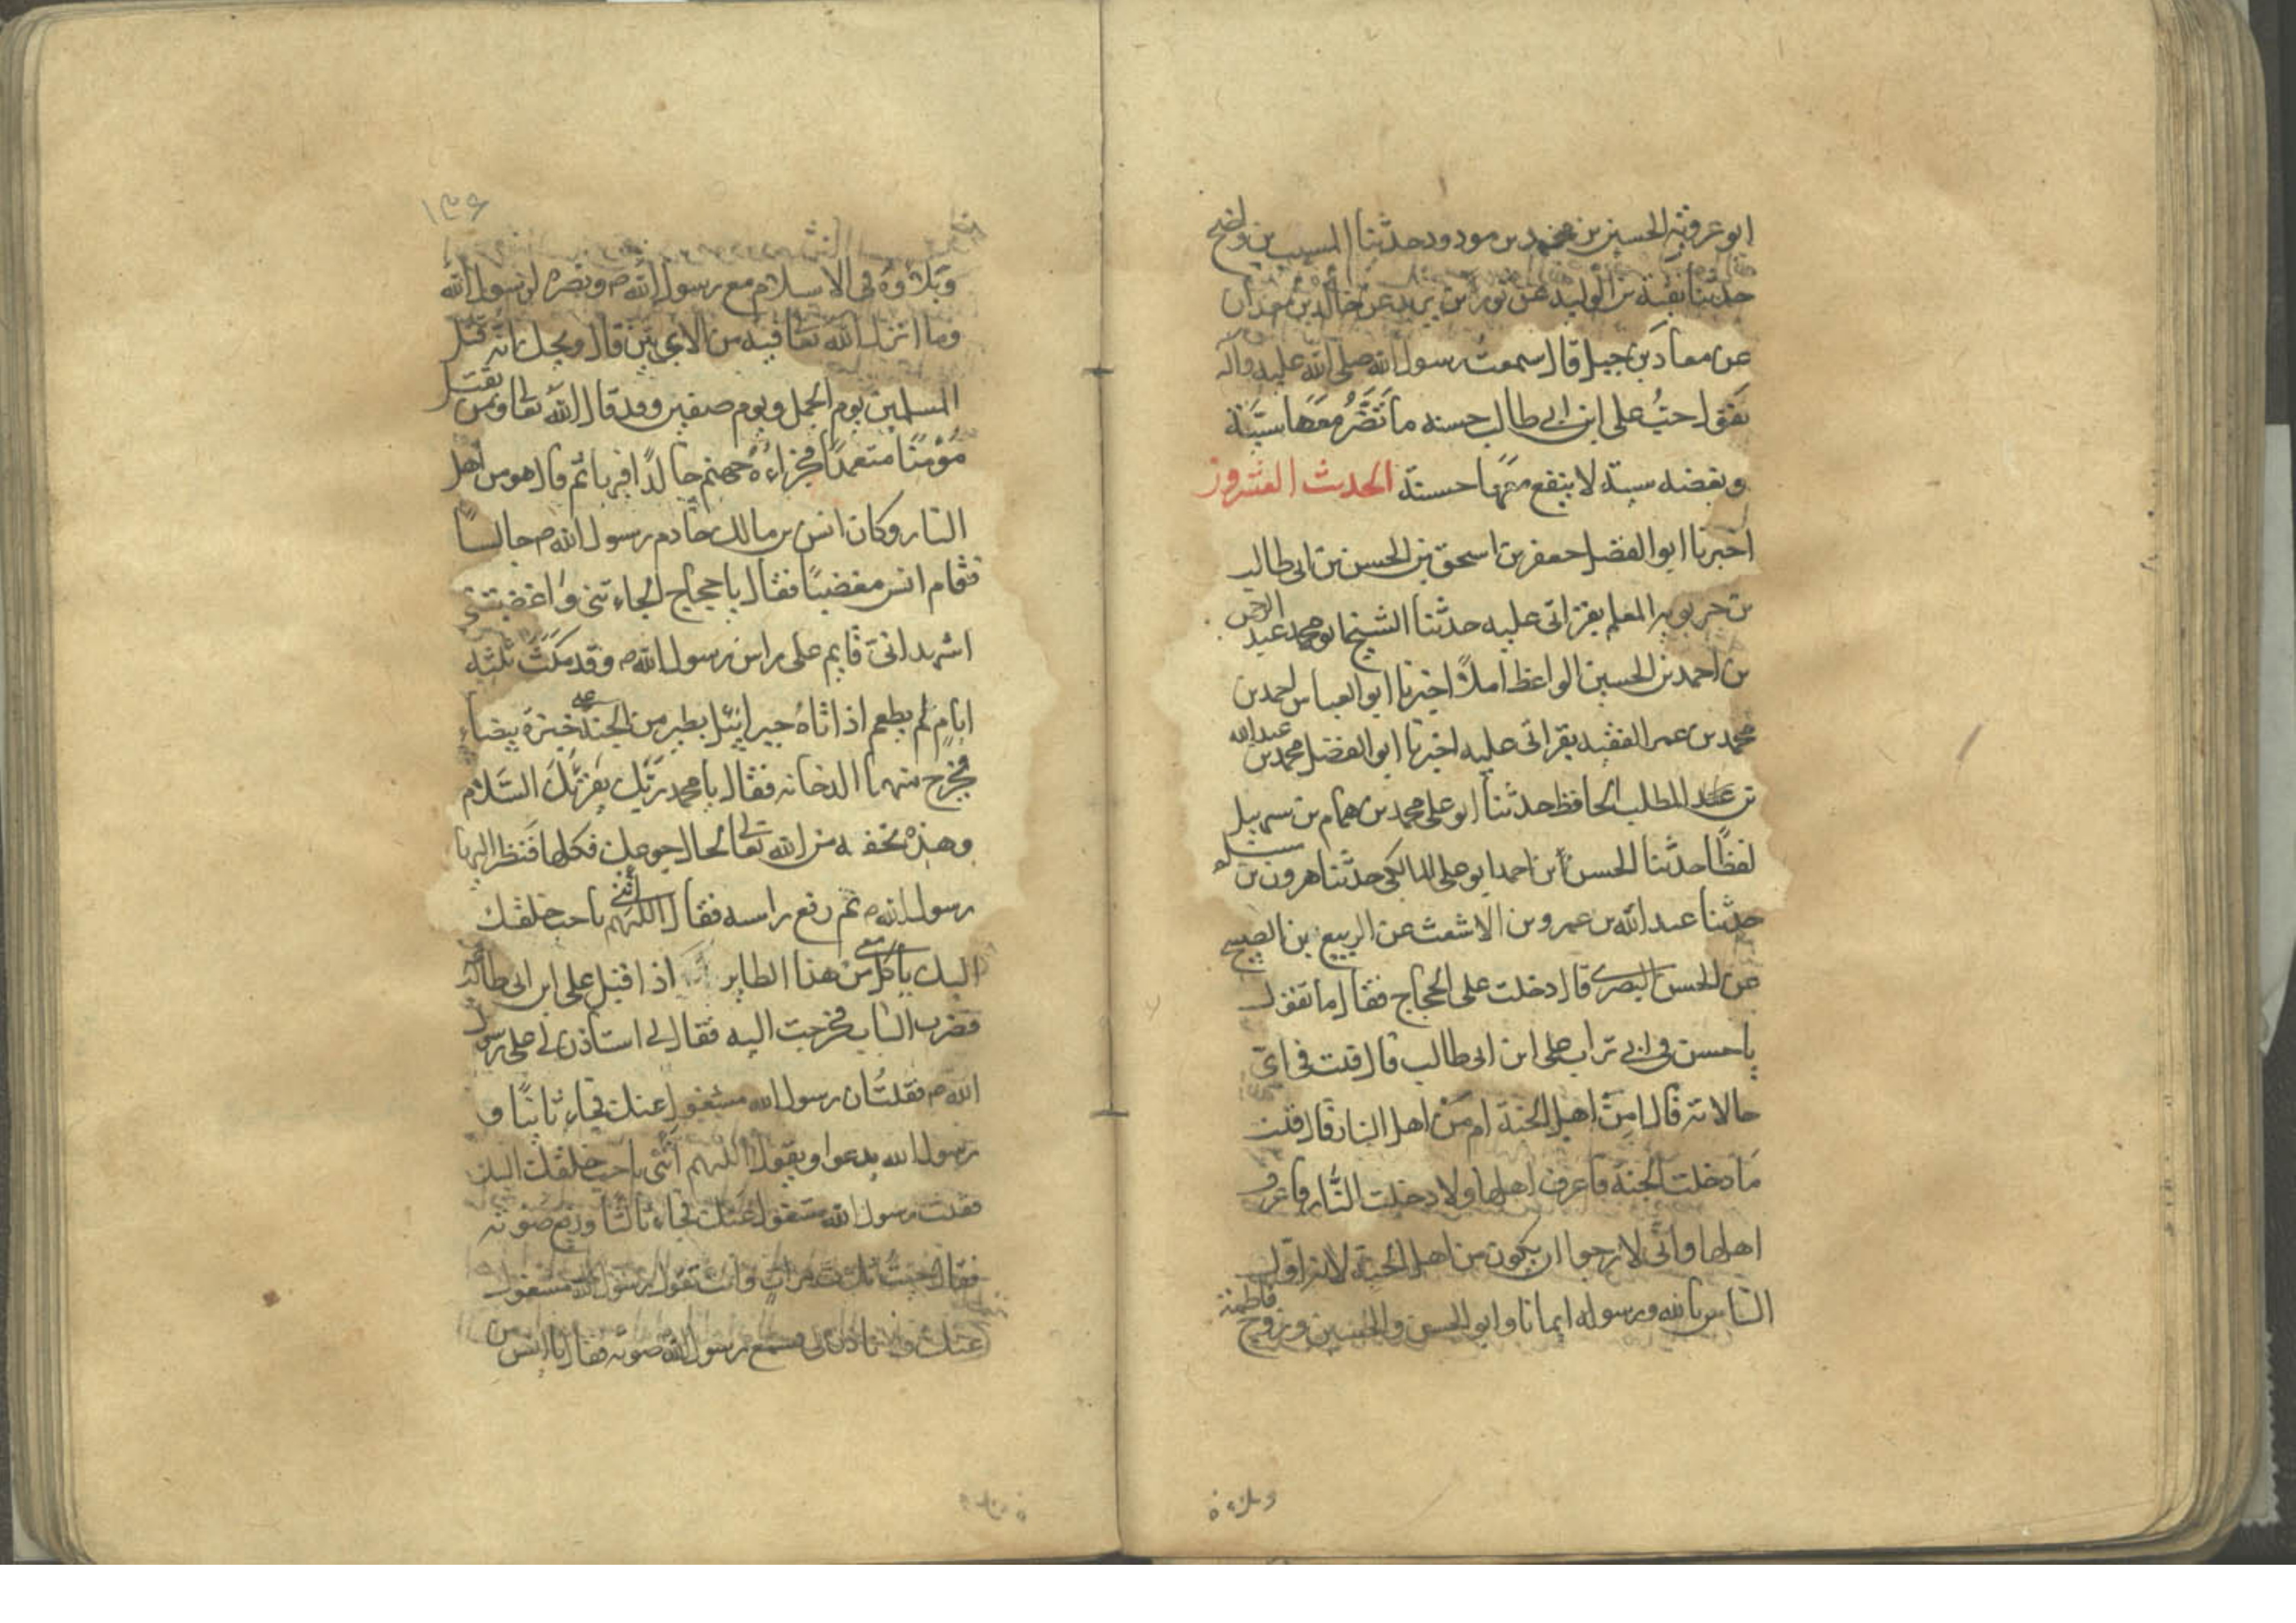 ابو عروبة الحسين بن محمد بن مودود حدثنا المسيب بن واضح
حدثنا بقية بن الوليد عن ثور بن يزيد عن خالد بن معدان
عن معاذ بن جبل قال سمعت رسول الله صلى الله عليه وآله
يقول حبُّ على ابن ابي طالب حسنه ما تَضُّر معها سيّئة
وبغضه سيئة لا ينفع معها حسنة الحديث العشرون
اخبرنا ابو الفضل جعفر بن اسحق بن الحسن بن ابى طالب
بن المعلم بقرائى عليه حدثنا الشيخ ابو محمد عبد الرحمن
بن احمد بن الحسين الواعظ املاً اخبرنا ابو العباس احمد بن
محمد بن عمر الفقيه بقرائى عليه اخبرنا ابو الفضل محمد بن عبد الله
بن عبد المطلب الحافظ حدثنا ابو على محمد بن همام بن سهيل
لفظًا حدثنا الحسن ابن احمد ابو على المالكى حدثنا هرون بن
حدثنا عبد الله بن عمرو بن الاشعث عن الربيع بن الصبيح
عن الحسن البصرى قال دخلت على الحجاج فقال ما تقول
يا حسن في ابي تراب على ابن ابى طالب قال قلت في اىّ
حالاته قال امِنْ اهل الجنة ام مَن اهل النار قال قلت
مَا دخلت الجنة فاعرف اهلها ولا دخلت النّار فاعرف
اهلها وانّى لارجوا ان يكون من اهل الجنة لانه اوّل
النّاس بالله ورسوله ايمانا وابو الحسن والحسين وزوج فاطمة
وبلاؤه
١٣۶
وَبلاؤهُ في الاسلام مع رسول الله ص ونصره لرسول الله
وما انزل الله تعا فيه من الاى بيّن قال ويحك انّه قتل
المسلمين يوم الجمل ويوم صفين وقد قال الله تعالى ومن يقتل
مُؤمنًا متعمدًا فجزاءهُ جهنم خالدًا فيها ثم قال هو من اهل
النار وكان انس بن مالك خادم رسول الله ص جالسًا
فقام انس مغضبًا فقال يا حجاج الجاءتنى واغضبتنى
اشهد انّى قايم على راس رسول الله ص وقد مكَثَ ثلثه
ايام لم يطعم اذ اتاهُ جبرائيل بطير من الجنة على خبزة بيضاء
فخرج منهما الدخان فقال يا محمد ربّك يقرئك السَّلام
وهذه تحفه من الله تعالى لحال جوعك فكلها فنظر اليها
رسول الله ص ثم رفع راسه فقال اللهم ائتنى باحب خلقك
اليك ياكل معى من هذا الطاير اذ اقبل على ابن ابى طالب
فضرب الباب فخرجت اليه فقال لي استاذن لي على رسول
الله ص فقلتُ ان رسول الله مشغول عنك فجاء ثانيًا و
رسول الله يدعوا ويقول اللهم ائتنى باحب خلقك اليك
فقلت رسول الله مشغول عنك فجاء ثالثا ورفع صوته
فقال جئتُ ثلث مرات وانت تقول رسول الله مشغول
عنك ولا تاذن لى فسمع رسول الله صوته فقال يا انس من